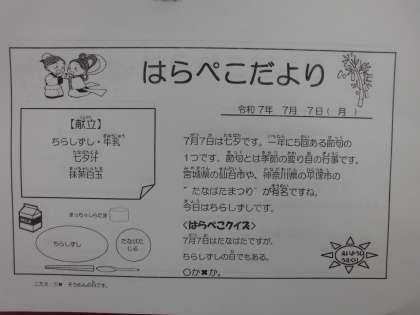 はらぺこだより
令和7年 7月 7日(月)
【献立】
ちらしずし・牛乳
七夕汁
抹茶白玉
7月7日は七夕です。一年に5回ある節句の
1つです。節句とは季節の変り目の行事です。
宮城県の仙台市や、神奈川県の平塚市の
"たなばたまつり"が有名ですね。
今日はちらしずしです。
<はらぺこクイズ>
7月7日はたなばたですが、
ちらしずしの日でもある。
○か✖か。
まっちゃしらたま
ちらしずし
たなばた
じる
こたえ：○✖ そうめんの日です。